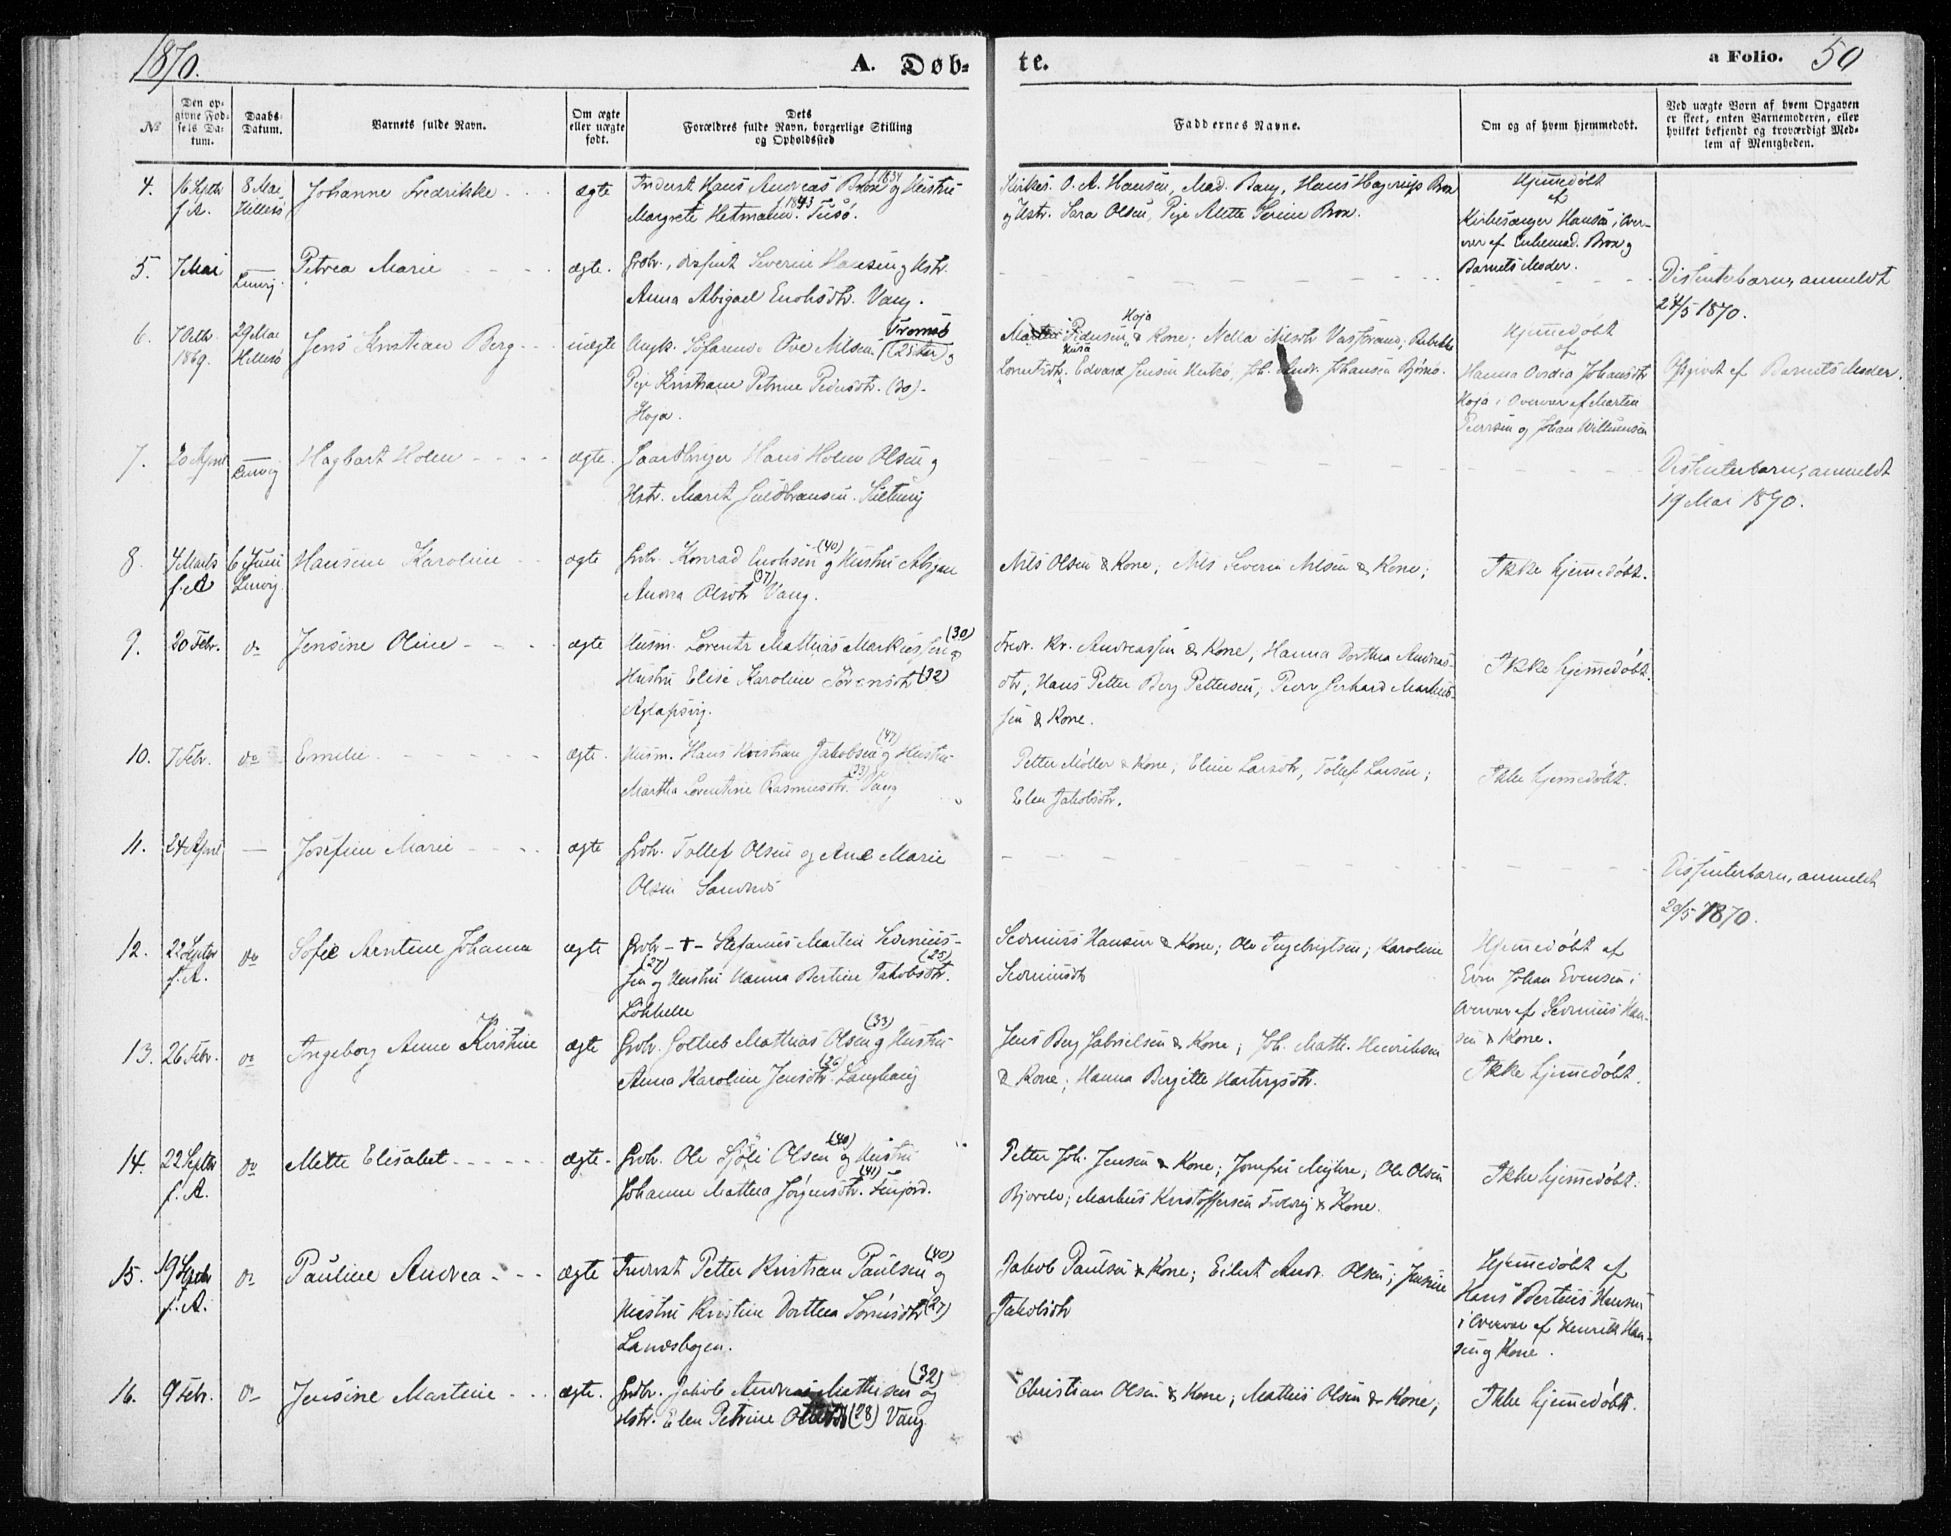 1870.
A. Døb-
te.
a Folio. 50
No
Den op-
givne Fød-
sels Da-
tum.
Daabs-
Datum.
Barnets fulde Navn.
Om ægte
eller uægte
født.
Dets
Forældres fulde Navn, borgerlige Stilling
og Opholdssted
Faddernes Navne.
Om og af hvem hjemmedøbt.
Ved uægte Børn af hvem Opgaven
er skeet, enten Barnemoderen, eller
hvilket bekjendt og troværdigt Med-
lem af Menigheden.
4.
16 Septbr
f. A.
8 Mai
Hillesø
Johanne Fredrikke
ægte
Inderst Hans Andreas Brox 1834 og Hustru
Margrete Hetmann 1843. Tusø.
Kirkes. O. A. Hansen, Mad. Bang, Hans Hagerup Brox
og Hstr. Sara Olsen, Pige Alette Serine Brox.
Hjemmedøbt
af
Kirkesanger Hansen i Over-
vær af Enkemad. Brox og
Barnets Moder.
5.
7 Mai
Lenvig.
Petrea Marie
ægte.
Grdbr., dissent. Severin Hansen og Hstr.
Anna Abigael Enoksdtr. Vang.
Dissenterbarn, anmeldt
24/5 1870.
6.
7 Octbr
1869.
29 Mai
Hillesø
Jens Kristian Berg
uægte
Ungk. Søfarende Ove Nilsen, Tromsø (25 Aar) og
Pige Kristiane Petrine Pedersdtr. (30).
Hoja.
Pedersen Hoja & Kone; Nella Nilsdtr Vasstrand, Rebekka
Edvard Jensen, Joh. Andr. Johansen Bjørnø.
Hjemmedøbt
af
Hanna Ovidea Johansdtr
Hoja i Overvær af Marten
Peersen og Johan Willumsen
Opgivet af Barnets Moder.
7.
20 April
Lenvig
Hagbart Holm
ægte.
Gaardbruger Hans Holm Olsen og
Hstr. Marit Guldbransen.
Dissenterbarn, anmeldt
19 Mai 1870.
8.
4 Marts
f. A
6 Juni
Lenvig.
Hansine Karoline
ægte
Grdbr. Konrad Enoksen (40) og Hustru Abigael
Andrea Olsdtr (37) Vang.
Nils Olsen & Kone; Nils Severin Nilsen & Kone;
Ikke hjemmedøbt.
9.
20 Febr.
do
Jensine Oline
ægte
Husm. Lorents Mathias Markussen (30) &
Hustru Elise Karoline Sørensdtr (32)
Aglapsvig.
Fredr. Kr. Andreassen & Kone, Hanna Dorthea Andreas-
dtr; Hans Petter Berg Pettersen; Peer Gerhard Markus-
sen & Kone.
Ikke hjemmedøbt.
10.
7 Febr.
do
Emilie
ægte.
Husm. Hans Kristian Jakobsen (47) og Hustru
Martha Lorentine Rasmusdtr. (33) Vang
Petter Møller & Kone; Eline Larsdtr, Tollef Larsen;
Elen Jakobsdtr.
Ikke hjemmedøbt.
11.
24 April
Josefine Marie
ægte
Grdbr. Tollef Olsen og Ane Marie
Olsen Sandnes
Dissenterbarn, anmeldt
20/5 1870.
12.
22 Septbr
f. A.
do
Sofie Arntine Johanna
ægte
Grdbr - + - Stefanus Martin Sevrinus-
sen (27) og Hustru Hanna Bertine Jakobsdtr. (25)
Løkhelle
Sevrinus Hansen & Kone; Ole Ingebrigtsen; Karoline
Sevrinusdtr
Hjemmedøbt af
Even Johan Evensen i
Overvær af Sevrinus Han-
sen & Kone.
13.
26 Febr.
do
Ingeborg Anne Kirstine
ægte
Grdbr. Gotlieb Mathias Olsen (33) og Hustru
Anna Karoline Jensdtr. (26) Langhaug
Jens Berg Gabrielsen & Kone; Joh. Math. Henriksen
& Kone; Hanna Bergitte Hartvigsdtr.
Ikke hjemmedøbt.
14.
22 Septbr
f. A.
do
Mette Elisabet
ægte
Grdbr. Ole Sjöli Olsen (40) og Hustru
Johanne Mathea Jørgensdtr. (41) Finjord.
Petter Joh. Jensen & Kone; Josefine Myhre; Ole Olsen
Markus Kristoffersen & Kone.
Ikke hjemmedøbt.
15.
19 Septbr
f. A.
do
Pauline Andrea
ægte
Inderst Petter Kristian Paulsen (40) og
Hustru Kristine Dorthea Sørensdtr (27)
Laksebogen.
Jakob Paulsen & Kone; Eilert Andr. Olsen; Jensine
Jakobsdtr
Hjemmedøbt af
Hans Bertius Hansen
i Overvær af Henrik Han-
sen og Kone.
16.
9 Febr.
do
Jensine Martine
ægte.
Grdbr. Jakob Andreas Mathisen (32) og
Hstr. Elen Petrine (28) Vang
Christian Olsen & Kone; Mathis Olsen & Kone;
Ikke hjemmedøbt.